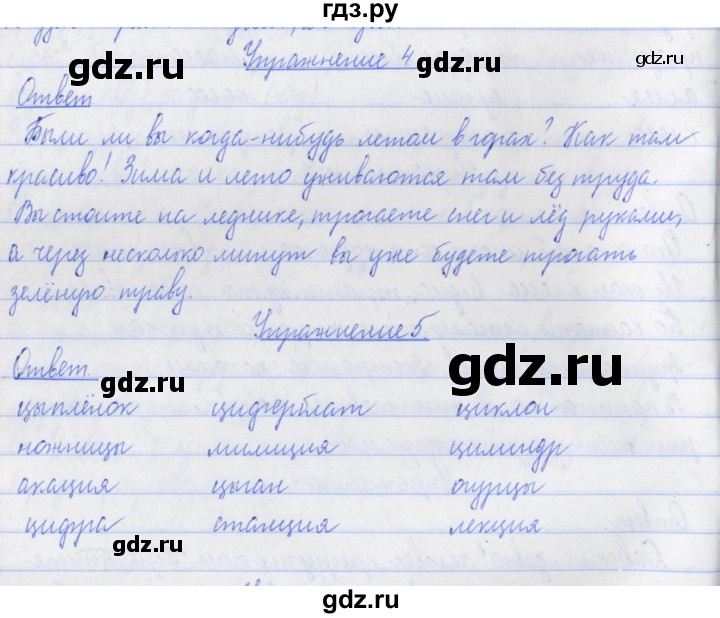 гдз.ру
Упражнение 4
Ответ
Были ли вы когда-нибудь летом в горах? Как там
красиво! Зима и лето уживаются там без труда.
Вы стоите на леднике, трогаете снег и лёд руками,
а через несколько минут вы уже будете трогать
зелёную траву.
Упражнение 5.
Ответ.
цыплёнок циферблат циклон
ножницы милиция цилиндр
акация цыган огурцы
цифра станция лекция
gdz.ru
gdz.ru
gdz.ru
gdz.ru
gdz.ru
gdz.ru
gdz.ru